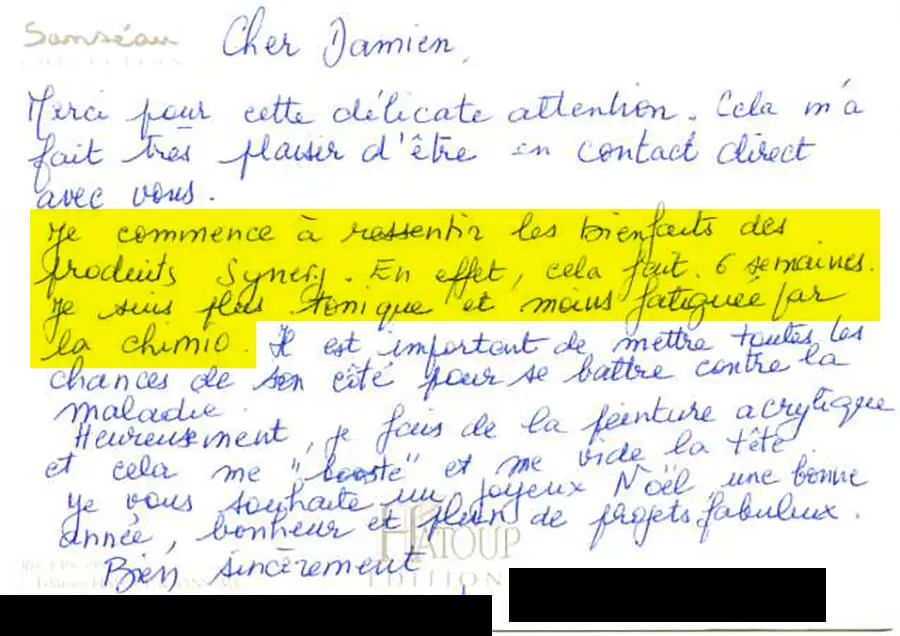 Sanséau
Cher Damien,
Merci pour cette délicate attention. Cela m'a
fait très plaisir d'être en contact direct
avec vous.
Je commence à ressentir les bienfaits des
produits Synergy. En effet, cela fait. 6 semaines.
Je suis plus tonique et moins fatiguée par
la chimio. Il est important de mettre toutes les
chances de son côté pour se battre contre la
maladie.
Heureusement, je fais de la peinture acrylique
et cela me "booste" et me vide la tête
Je vous souhaite un joyeux Noël, une bonne
année, bonheur et plein de projets fabuleux.
HATOUP
Bien sincèrement
EDITIONS